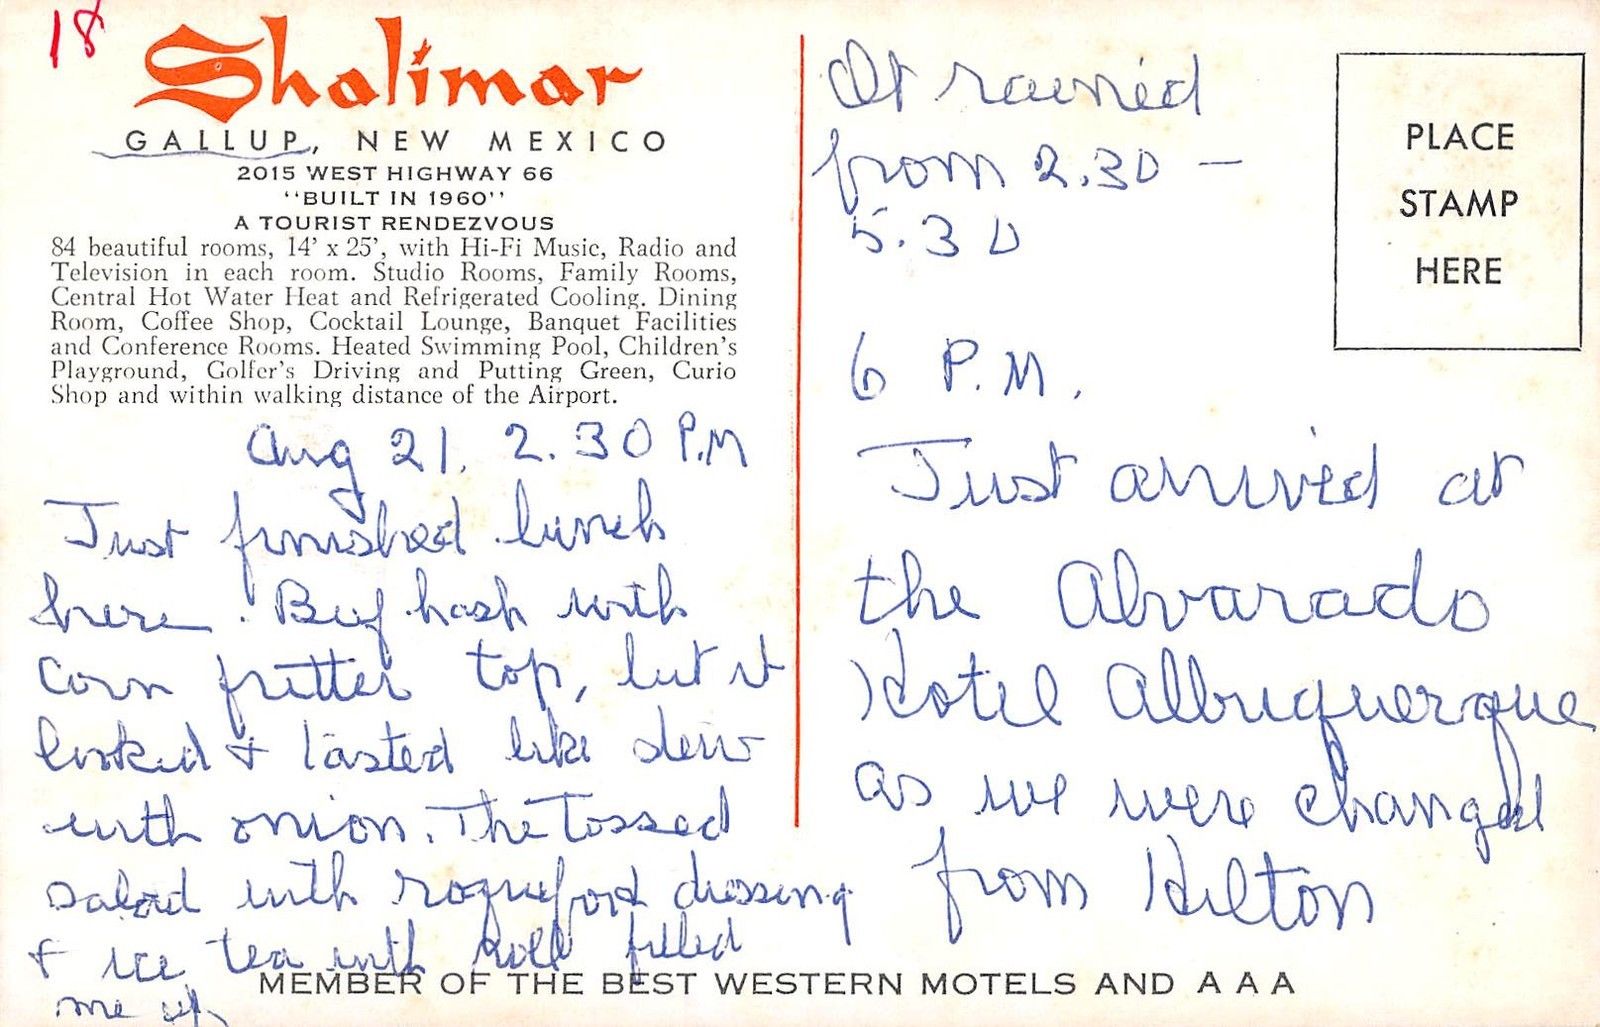 18
Shalimar
GALLUP, NEW MEXICO
2015 WEST HIGHWAY 66
"BUILT IN 1960"
A TOURIST RENDEZVOUS
84 beautiful rooms, 14' x 25', with Hi-Fi Music, Radio and
Television in each room. Studio Rooms, Family Rooms,
Central Hot Water Heat and Refrigerated Cooling. Dining
Room, Coffee Shop, Cocktail Lounge, Banquet Facilities
and Conference Rooms. Heated Swimming Pool, Children's
Playground, Golfer's Driving and Putting Green, Curio
Shop and within walking distance of the Airport.
Aug 21. 2.30 P.M
Just finished lunch
here. Beef hash with
corn fritter top, but it
looked & tasted like stew
with onion. The Tossed
salad with roquefort dressing
& ice tea with roll filled
me up
It rained
from 2.30 –
5.30
6 P.M.
Just arrived at
the Alvarado
Hotel Albuquerque
as we were changed
from Hilton
PLACE
STAMP
HERE
MEMBER OF THE BEST WESTERN MOTELS AND AAA